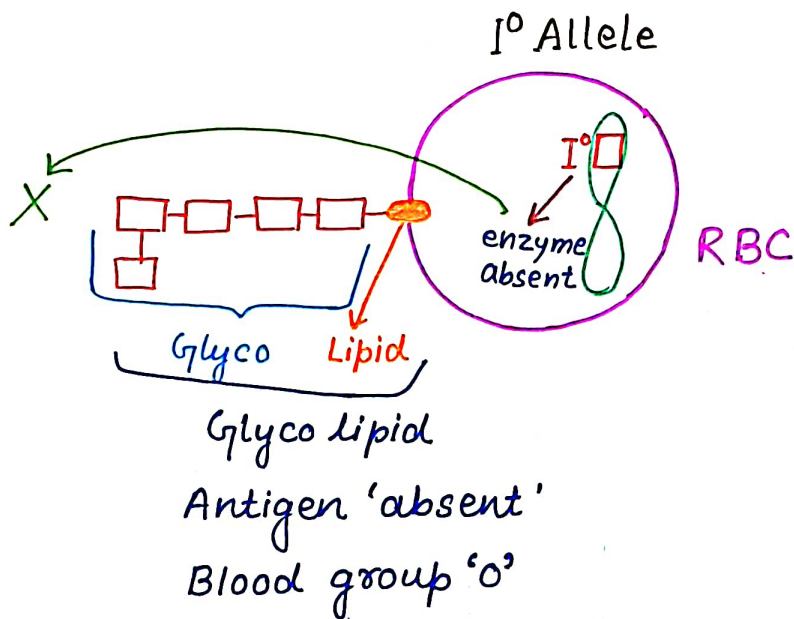 I⁰ Allele
I⁰
X
enzyme
absent
RBC
Glyco
Lipid
Glyco lipid
Antigen 'absent'
Blood group 'O'